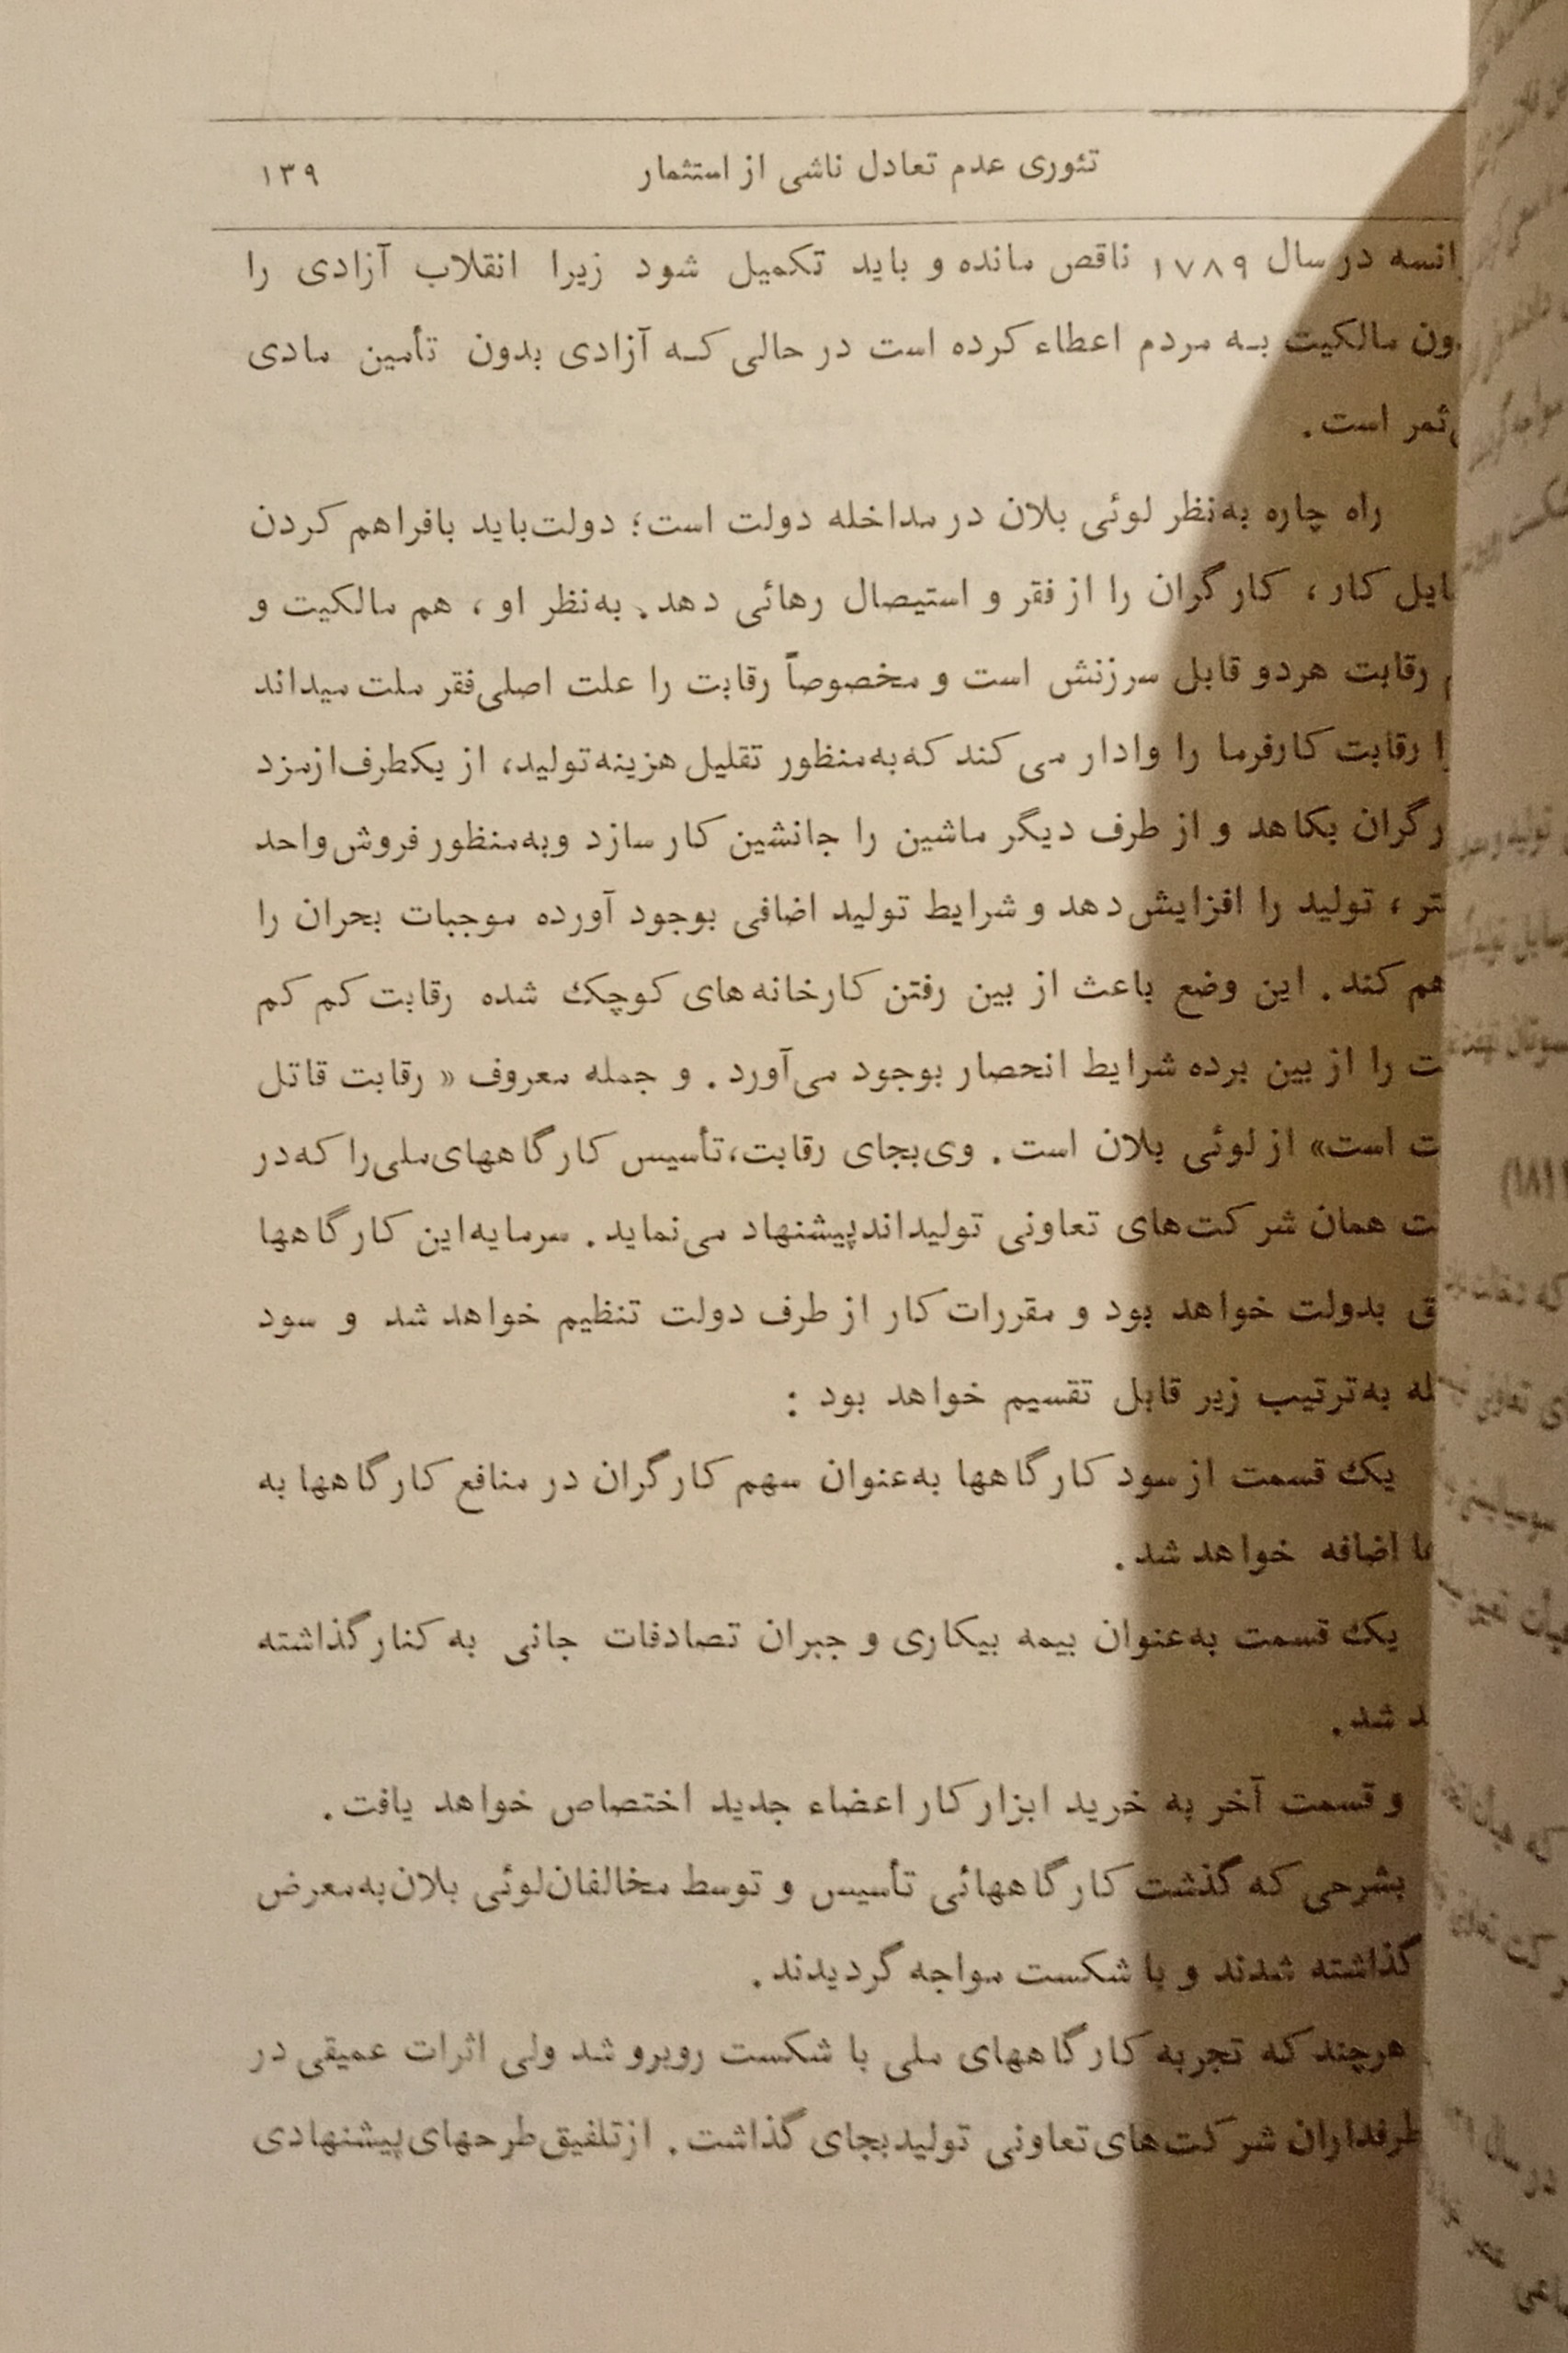 تئوری عدم تعادل ناشی از استثمار ۱۳۹
در سال ۱۷۸۹ ناقص مانده و باید تکمیل شود زیرا انقلاب آزادی را
مالکیت به مردم اعطاء کرده است در حالی که آزادی بدون تأمین مادی
است.
راه چاره به‌نظر لوئی بلان در مداخله دولت است؛ دولت‌باید بافراهم کردن
کار، کارگران را از فقر و استیصال رهائی دهد. به‌نظر او، هم مالکیت و
رقابت هردو قابل سرزنش است و مخصوصاً رقابت را علت اصلی‌فقر ملت میداند
رقابت کارفرما را وادار می کند که‌به‌منظور تقلیل هزینه‌تولید، از یکطرف‌ازمزد
بکاهد و از طرف دیگر ماشین را جانشین کار سازد وبه‌منظور فروش‌واحد
، تولید را افزایش‌دهد و شرایط تولید اضافی بوجود آورده موجبات بحران را
کند. این وضع باعث از بین رفتن کارخانه‌های کوچک شده رقابت کم کم
را از بین برده شرایط انحصار بوجود می‌آورد. و جمله معروف «رقابت قاتل
است» از لوئی بلان است. وی‌بجای رقابت،تأسیس کارگاههای‌ملی‌را که‌در
همان شرکت‌های تعاونی تولیداندپیشنهاد می‌نماید. سرمایه‌این کارگاهها
بدولت خواهد بود و مقررات کار از طرف دولت تنظیم خواهد شد و سود
به‌ترتیب زیر قابل تقسیم خواهد بود :
یک قسمت از سود کارگاهها به‌عنوان سهم کارگران در منافع کارگاهها به
اضافه خواهد شد.
یک قسمت به‌عنوان بیمه بیکاری و جبران تصادفات جانی به کنار گذاشته
شد.
و قسمت آخر به خرید ابزار کار اعضاء جدید اختصاص خواهد یافت.
بشرحی که گذشت کارگاههائی تأسیس و توسط مخالفان‌لوئی بلان‌به‌معرض
گذاشته شدند و با شکست مواجه گردیدند.
هرچند که تجربه کارگاههای ملی با شکست روبرو شد ولی اثرات عمیقی در
طرفداران شرکت‌های‌تعاونی تولیدبجای گذاشت. ازتلفیق‌طرحهای‌پیشنهادی